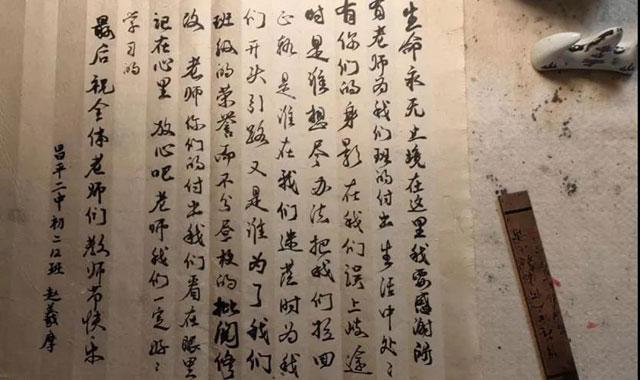 生命永无止境在这里我要感谢所
有老师为我们班的付出生活中处〻
有你们的身影在我们误上歧途
时是谁想尽办法把我们拉回
正轨是谁在我们迷茫时为我
们开头引路又是谁为了我们
班级的荣誉而不分昼夜的批阅修
改 老师你们的付出我们看在眼里
记在心里 放心吧 老师我们一定好〻
学习的
最后祝全体老师们教师节快乐
昌平二中初二12班 赵羲摩